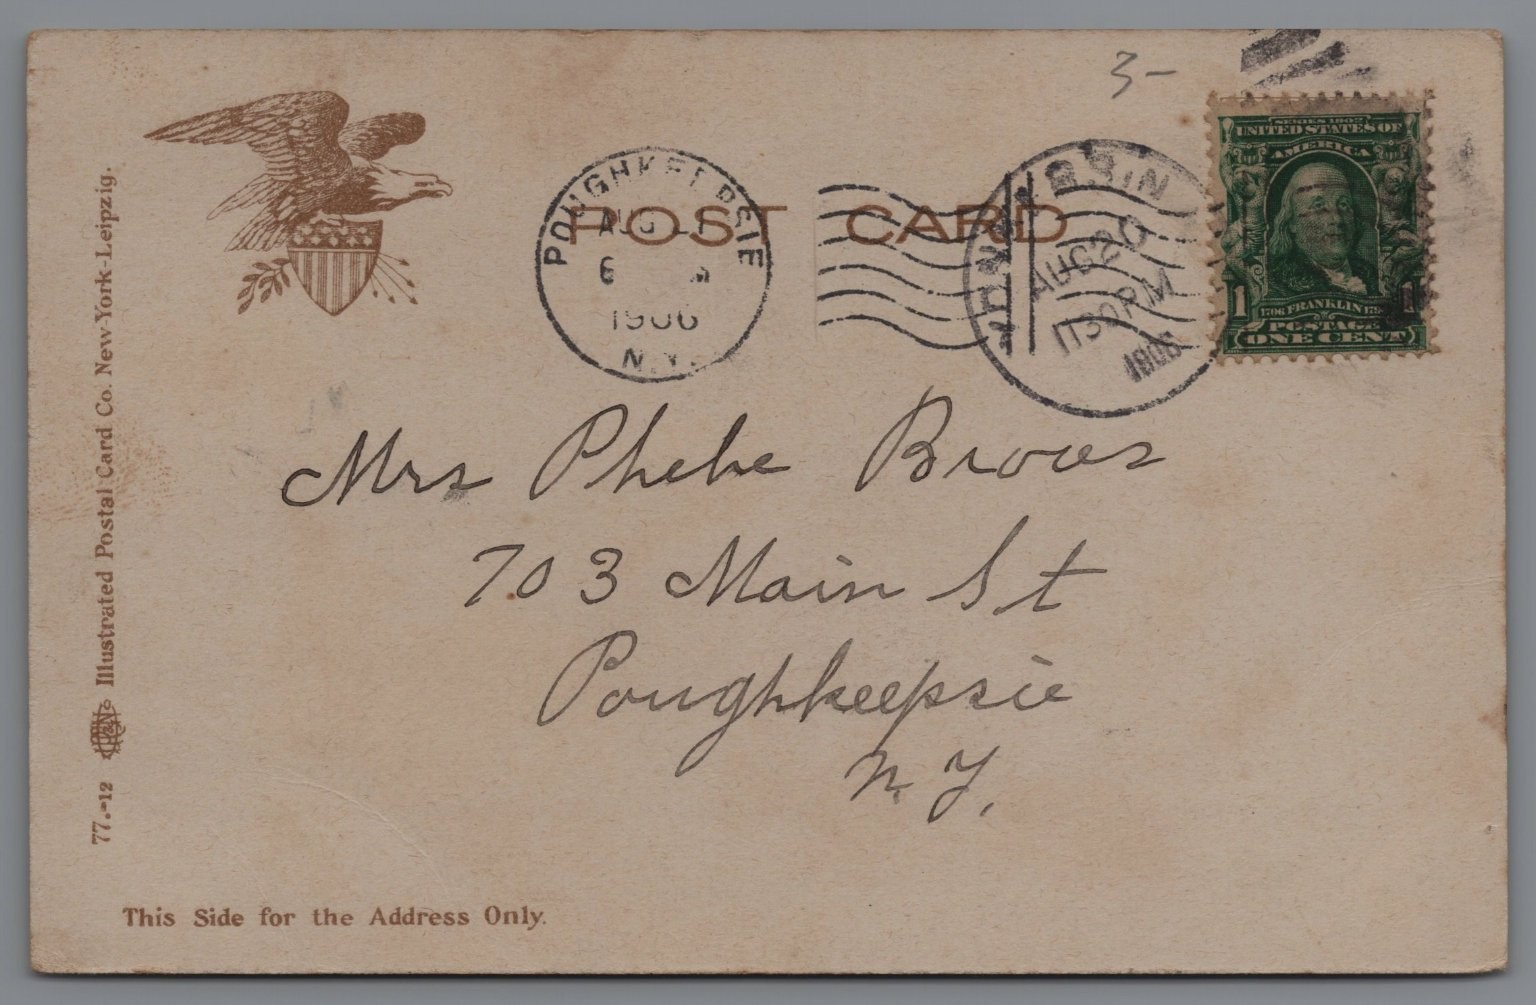 3-
SERIES 1902
UNITED STATES OF
AMERICA
1 1706 FRANKLIN
POSTAGE
ONE CENT
POUGHKEEPSIE
AUG
6
1906
N.Y.
POST CARD
AUG 20
1130 PM
1906
Mrs Phebe Brows
703 Main St
Poughkeepsie
N. Y.
77.-12 Illustrated Postal Card Co. New-York-Leipzig.
This Side for the Address Only.